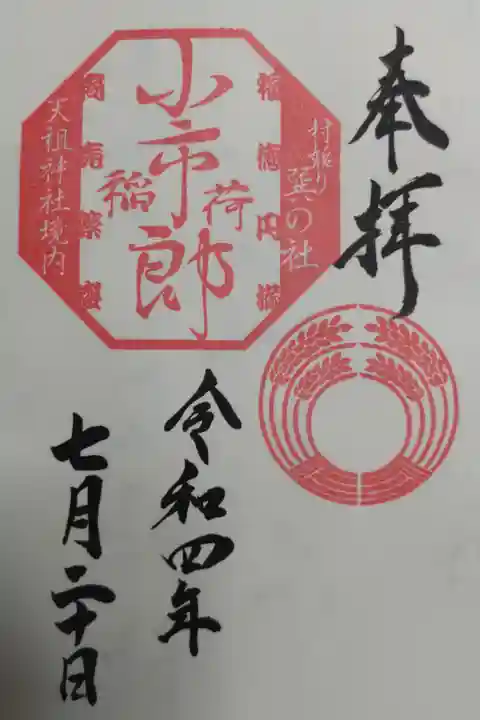 奉拝
村祭り 巽の社
小市郎
稲荷
天祖神社境内
令和四年
七月二十日